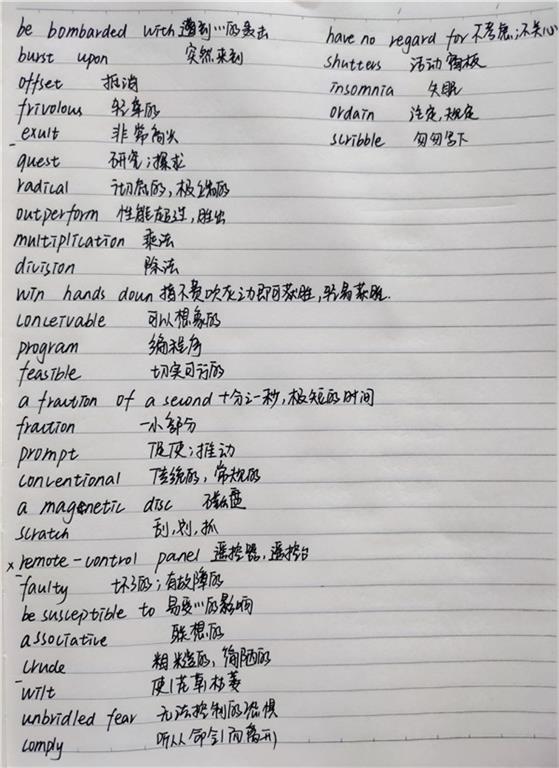 be bombarded with 遭到…的轰击
burst upon 突然来到
offset 抵消
frivolous 轻率的
exult 非常高兴
quest 研究；探求
radical 彻底的，极端的
outperform 性能超过，胜出
multiplication 乘法
division 除法
win hands down 指不费吹灰之力即可获胜，轻易获胜.
conceivable 可以想象的
program 编程序
feasible 切实可行的
a fraction of a second 十分之一秒，极短的时间
fraction 一小部分
prompt 促使；推动
conventional 传统的，常规的
a magnetic disc 磁盘
scratch 刮，划，抓
x remote-control panel 遥控器，遥控台
faulty 坏了的；有故障的
be susceptible to 易受…的影响
associative 联想的
crude 粗糙的，简陋的
wilt 使(花草)枯萎
unbridled fear 无法控制的恐惧
comply 听从命令
have no regard for 不考虑；不关心
shutters 活动窗板
insomnia 失眠
ordain 注定，规定
scribble 匆匆写下